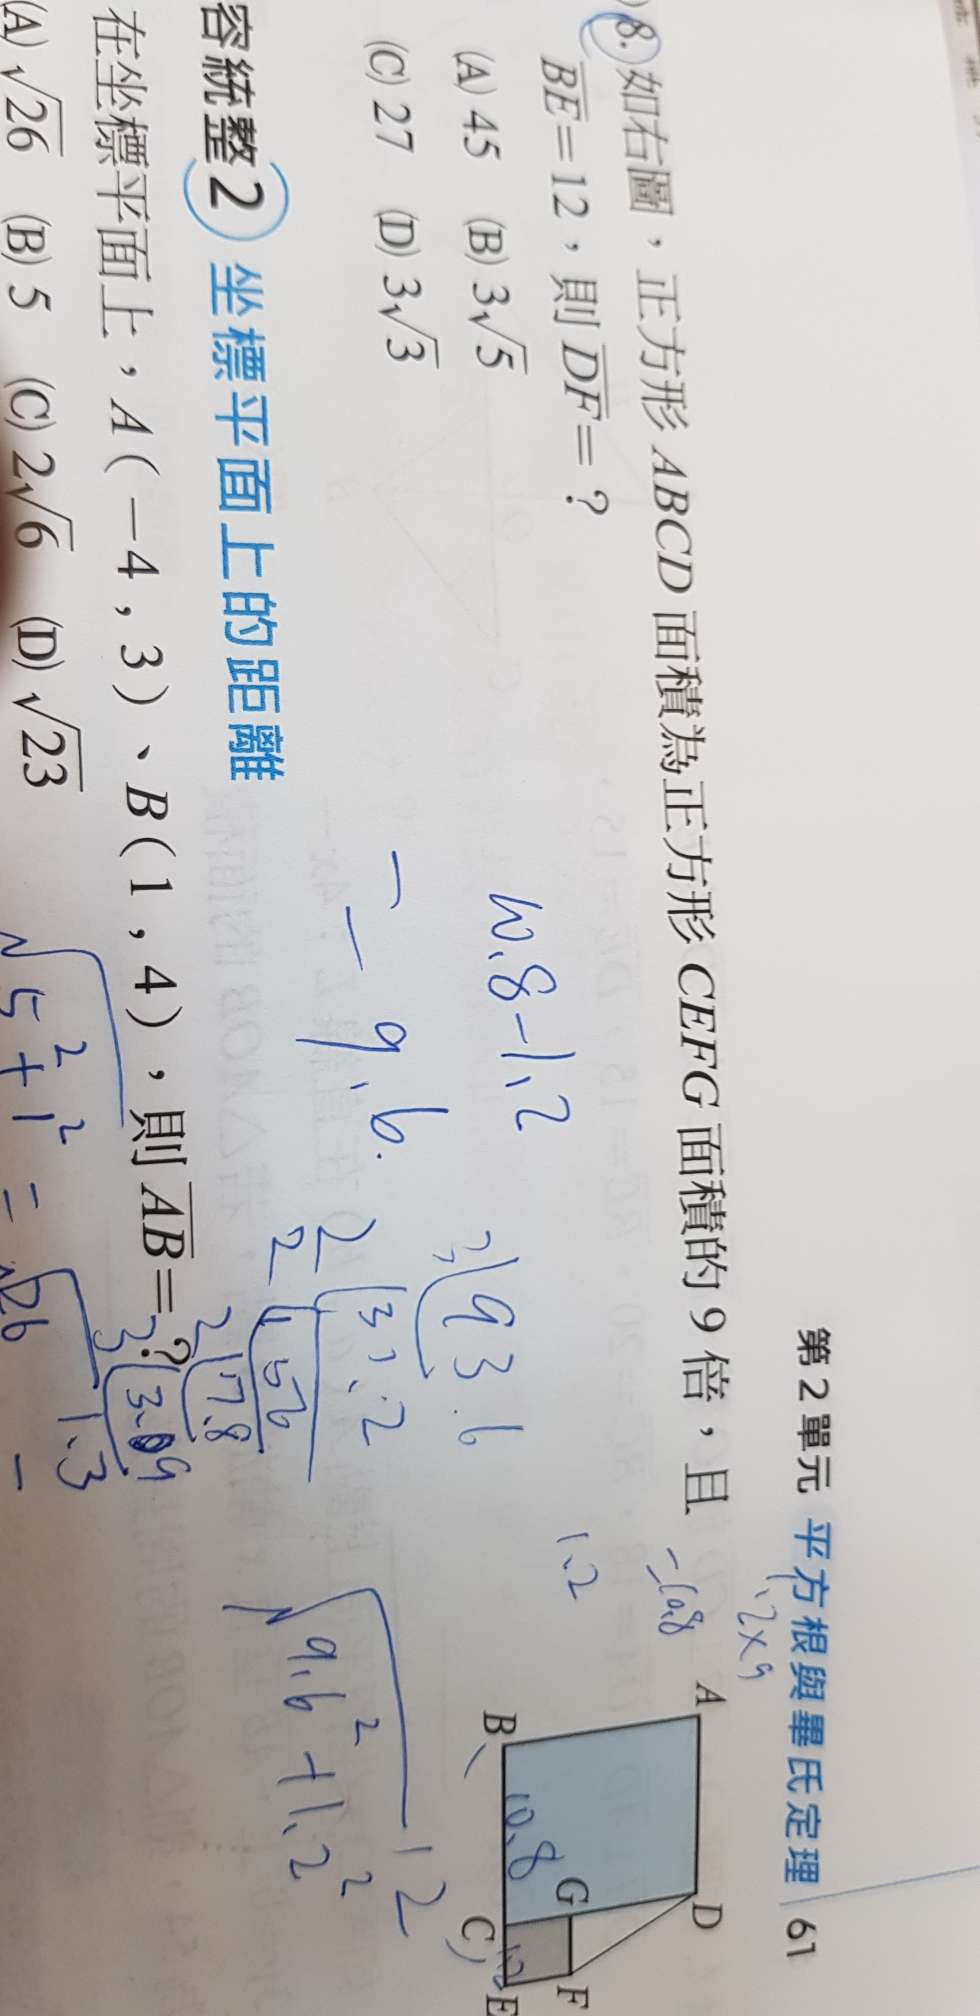 第2單元 平方根與畢氏定理 61
8. 如右圖，正方形 ABCD 面積為正方形 CEFG 面積的 9 倍，且
BE = 12，則 DF = ?
(A) 45 (B) 3√5
(C) 27 (D) 3√3
A
D
B
G
F
C
E
1.2×9
=10.8
1.2
10.8
10.8-1.2
= 9.6
√9.6²+1.2²
12
容統整2 坐標平面上的距離
在坐標平面上，A(-4,3)、B(1,4)，則 AB = ?
(A) √26 (B) 5 (C) 2√6 (D) √23
√5²+1² = √26